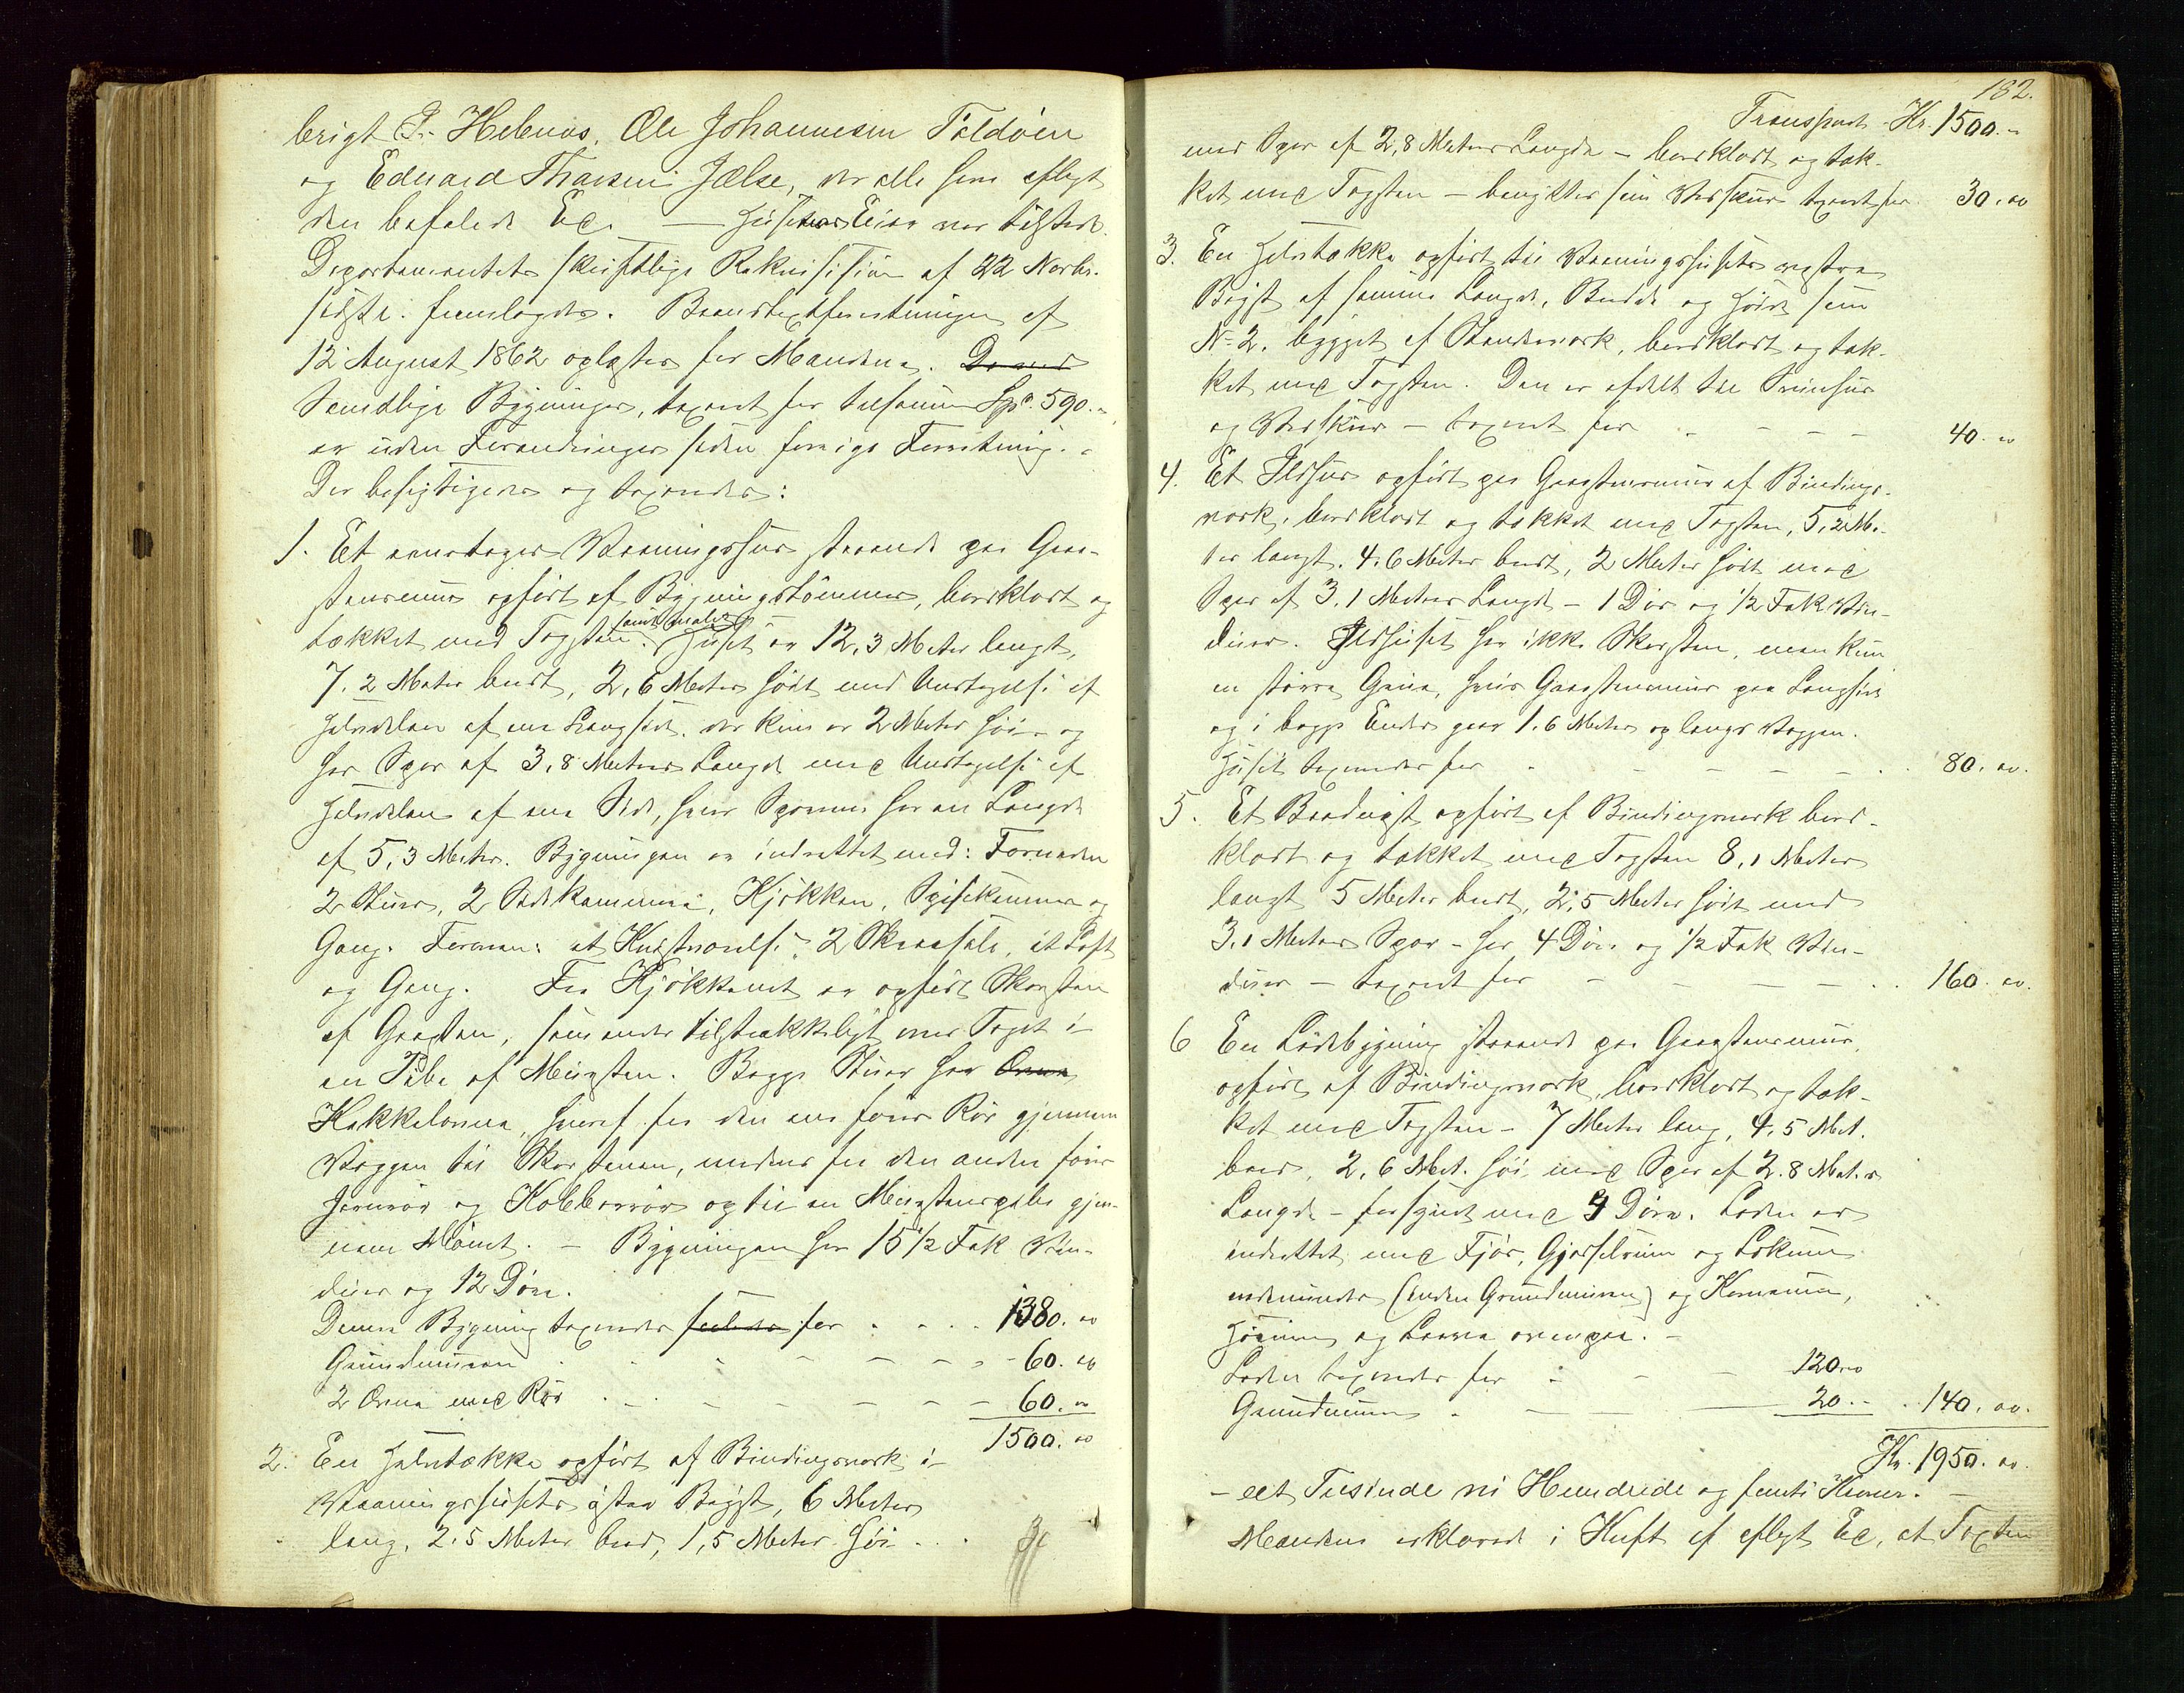 brigt P. Helenæs, Ole Johannesen Foldøen
og Edvard Thorsen Jelse, der alle have aflagt
den befalede Ed. — Husets Eier var tilstede.
Departementets skriftlige Rekvisition af 22 Novbr.
sidstl. fremlagdes. Brandtaxtforretningen af
12 August 1862 oplæstes for Mændene.
Samtlige Bygninger, taxeret for tilsammen Spd. 590.
er uden Forandringer siden forrige Forretning.
Der besigtigedes og taxeredes:
1. Et eenetages Vaaningshus staaende paa Graa-
stensmur opført af Bygningstømmer, bordklædt og
tækket med Tagsten samt malet. Huset er 12,3 Meter langt,
7.2 Meter bredt, 2,6 Meter høit med Undtagelse af
Halvdelen af ene Langside, der kun er 2 Meter høi og
har Sper af 3,8 Meters Længde med Undtagelse af
Halvdelen af ene Side, hvor Sperrene har en Længde
af 5,3 Meter. Bygningen er indrettet med: Forneden
2 Stuer, 2 Sidekammere, Kjøkken, Spisekammer og
Gang. Foroven: et Kvistværelse, 2 Skraasale, et Loft
og Gang. Fra Kjøkkenet er opført Skorsten
af Graasten, som ender tilstrækkeligt over Taget i
en Pibe af Murgsten. Begge Stuer har
Kakkelovne, hvoraf fra den ene fører Rør gjennem
Væggen til Skorstenen, medens fra den anden fører
Jernrør og Kobberrør op til en Murgstenspibe gjen-
nem Mønet. — Bygningen har 15 1/2 Fak Vin-
duer og 12 Døre.
Denne Bygning taxeredes for . . . 1380. 00
Grundmuren . . . 60. 00
2 Ovne med Rør . . . 60. 00
1500. 00
2. En Halvtække opført af Bindingsverk i
Vaaningshusets østre Bagst, 6 Meter
lang, 2.5 Meter bred, 1,5 Meter høi
182.
Transport Kr. 1500.
med Sper af 2,8 Meters Længde – bordklædt og tæk-
ket med Tagsten – benyttes som Vedskur taxeret for 30. 00
3. En Halvtække opført til Vaaningshusets vestre
Bagst af samme Længde, Bredde og Høide som
No 2, bygget af Standverk, bordklædt og tæk-
ket med Tagsten. Den er afdelt til Svinhus
og Vedskur – taxeret for . . . 40. 00
4. Et Ildhus opført paa Graastensmur af Bindings-
verk, bordklædt og tækket med Tagsten, 5,2 Me-
ter langt, 4.6 Meter bredt, 2 Meter høit med
Sper af 3,1 Meters Længde – 1 Dør og 1/2 Fak Vin-
duer. Ildhuset har ikke Skorsten, men kun
en større Grua, hvis Graastensmur paa Langside
og i begge Ender gaar 1.6 Meter op langs Væggen.
Huset taxeredes for . . . 80. 00.
5. Et Baadnøst opført af Bindingsverk bord-
klædt og tækket med Tagsten 8,1 Meter
langt 5 Meter bredt, 2,5 Meter høit med
3,1 Meters Sper – har 4 Døre og 1/2 Fak Vin-
duer – taxeret for . . . 160. 00.
6 En Ladebygning staaende paa Graastensmur,
opført af Bindingsverk, bordklædt og tæk-
ket med Tagsten – 7 Meter lang, 4,5 Met.
bred, 2,6 Met. høi med Sper af 2.8 Meters
Længde – forsynet med 4 Døre. Laden er
indrettet med Fjøs, Gjødselrum og Lokum
nedenunder (inden Grundmuren) og Kornrum,
Hørum og Laave ovenpaa. –
Laden taxeredes for . . . 120 00
Grundmuren . . . 20. – 140. 00.
Kr. 1950. 00.
– eet Tusinde ni Hundrede og femti Kroner. –
Mændene erklærede i Kraft af aflagt Ed, at Taxten